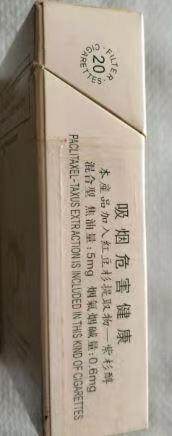 FILTER CIGARETTES
20
吸烟危害健康
本產品加入紅豆杉提取物—紫杉醇
混合型 焦油量:5mg 烟氣烟碱量:0.6mg
PACLITAXEL-TAXUS EXTRACTION IS INCLUDED IN THIS KIND OF CIGARETTES